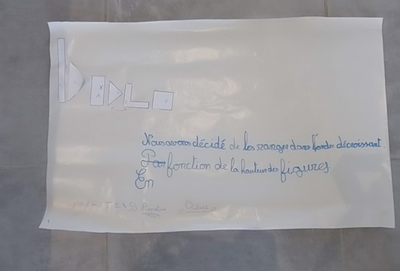 Nous avons décidé de les ranger dans l'ordre décroissant
Par fonction de la hauteur des figures
En